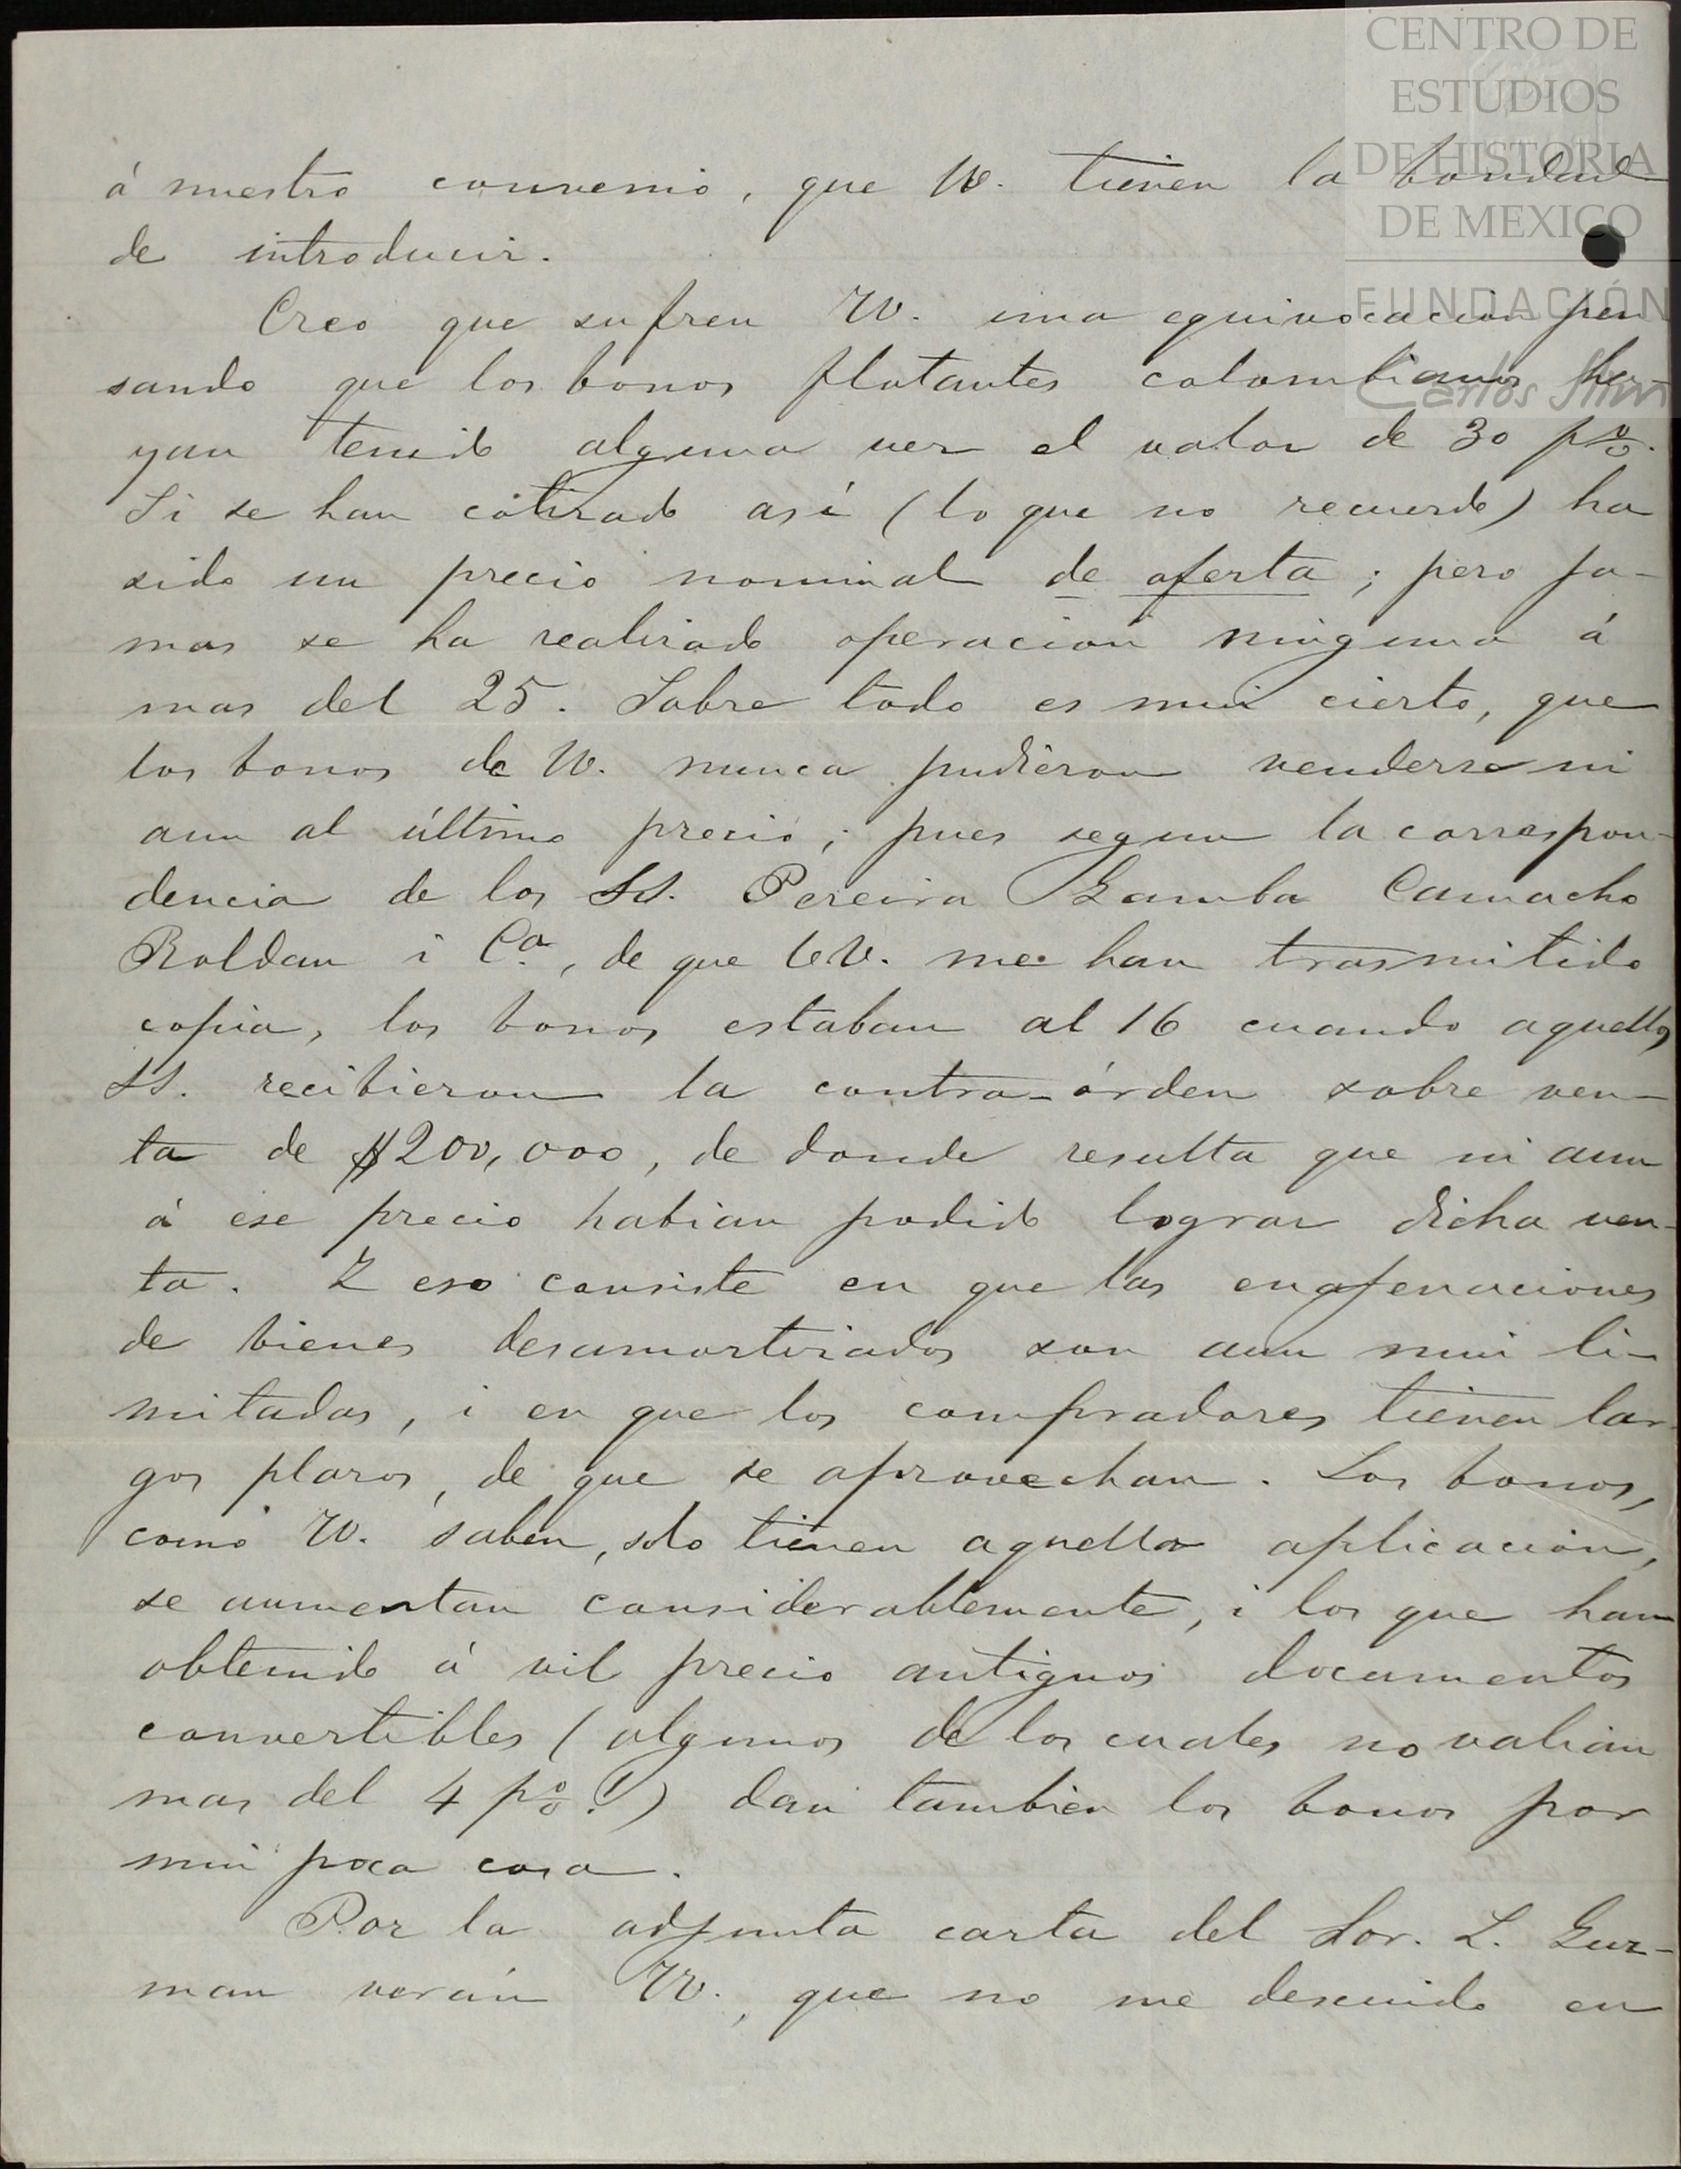 CENTRO DE
ESTUDIOS
DE HISTORIA
DE MEXICO
FUNDACIÓN
Carlos Slim
á nuestro convenio, que VV. tienen la bondad
de introducir.
Creo que sufren VV. una equivocacion pen
sando que los bonos flotantes colombianos ha-
yan tenido alguna vez el valor de 30 p%.
Si se han cotizado así (lo que no recuerdo) ha
sido un precio nominal de oferta; pero ja-
mas se ha realizado operacion ninguna á
mas del 25. Sobre todo es mui cierto, que
los bonos de VV. nunca pudieron venderse ni
aun al último precio; pues segun la correspon-
dencia de los SS. Pereira Gamba Camacho
Roldan i Ca., de que VV. me han trasmitido
copia, los bonos estaban al 16 cuando aquellos
SS. recibieron la contra-órden sobre ven-
ta de $200,000, de donde resulta que ni aun
á ese precio habian podido lograr dicha ven-
ta. I eso consiste en que las enajenaciones
de bienes desamortizados son aun mui li-
mitadas, i en que los compradores tienen lar-
gos plazos, de que se aprovechan. Los bonos,
como VV. saben, solo tienen aquella aplicacion,
se aumentan considerablemente, i los que han
obtenido á vil precio antiguos documentos
convertibles (algunos de los cuales no valian
mas del 4 p%!) dan tambien los bonos por
mui poca cosa.
Por la adjunta carta del Sor. L. Guz-
man verán VV., que no me descuido en